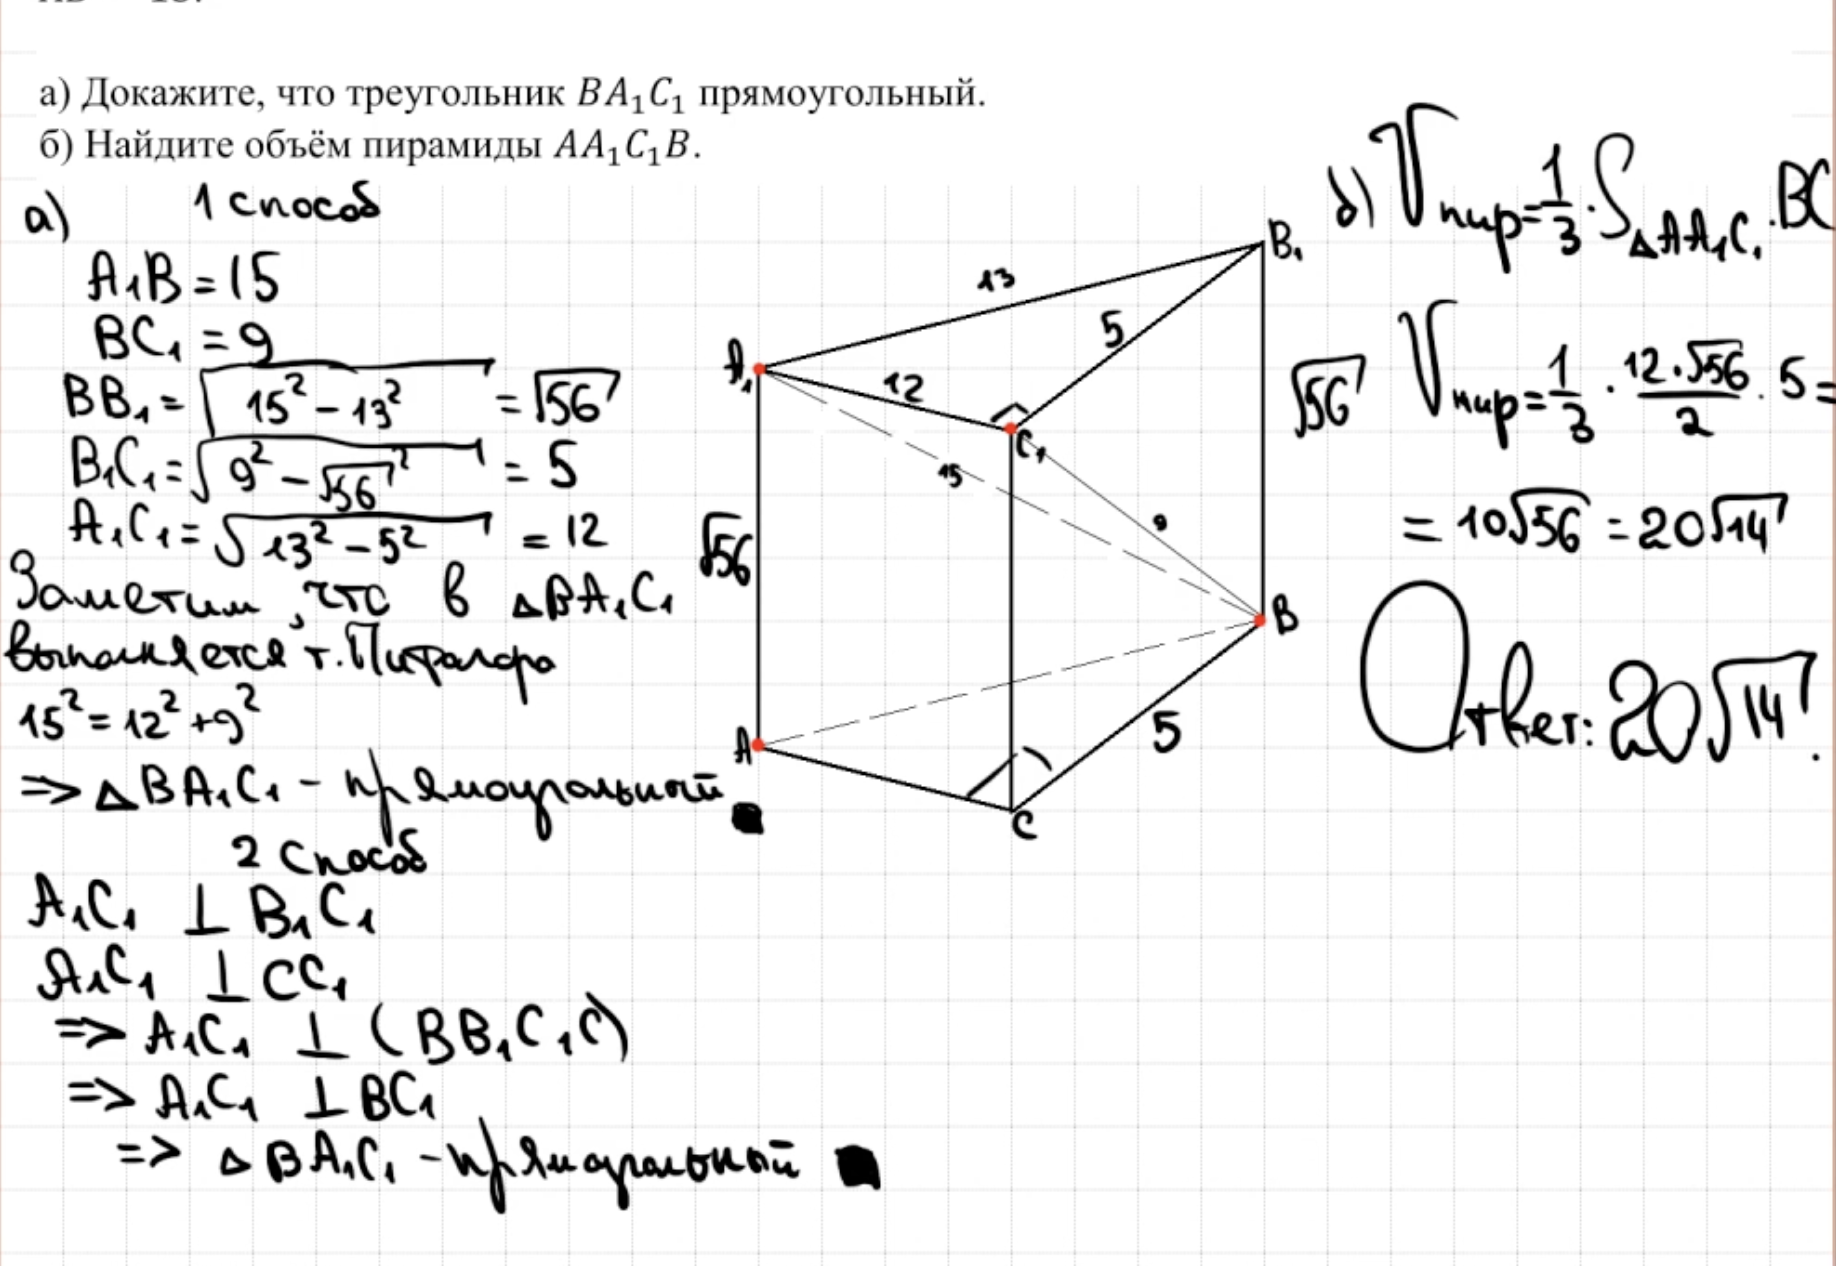 а) Докажите, что треугольник BA₁C₁ прямоугольный.
б) Найдите объём пирамиды AA₁C₁B.
а) 1 способ
A₁B = 15
BC₁ = 9
BB₁ = √(15² − 13²) = √56
B₁C₁ = √(9² − √56²) = 5
A₁C₁ = √(13² − 5²) = 12
Заметим, что в △BA₁C₁
выполняется т. Пифагора
15² = 12² + 9²
=> △BA₁C₁ – прямоугольный ■
2 способ
A₁C₁ ⊥ B₁C₁
A₁C₁ ⊥ CC₁
=> A₁C₁ ⊥ (BB₁C₁C)
=> A₁C₁ ⊥ BC₁
=> △BA₁C₁ – прямоугольный ■
A₁
B₁
C₁
A
B
C
13
5
12
15
9
√56
√56
5
б) Vпир = 1/3 · S△AA₁C₁ · BC
Vпир = 1/3 · 12·√56/2 · 5 =
= 10√56 = 20√14
Ответ: 20√14.